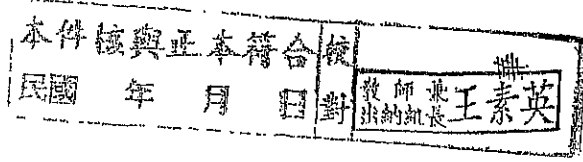 本件核與正本符合
民國 年 月 日
校對
教師兼
出納組長
王素英